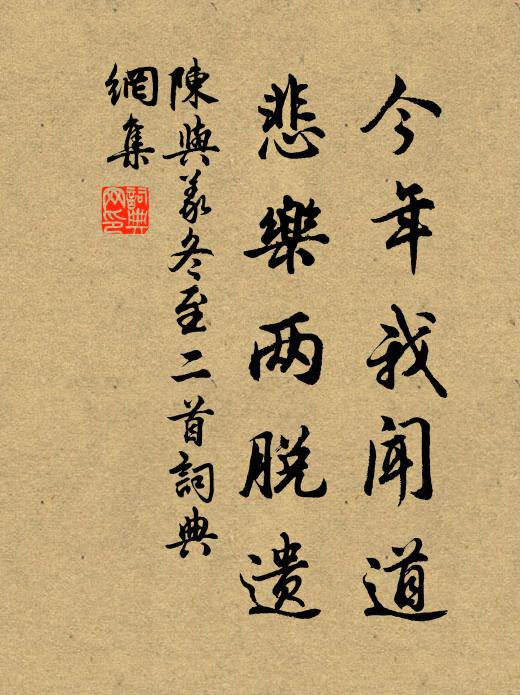 今年我闻道
悲樂两脱遗
陳與義冬至二首詞典
網集
詞典
网印